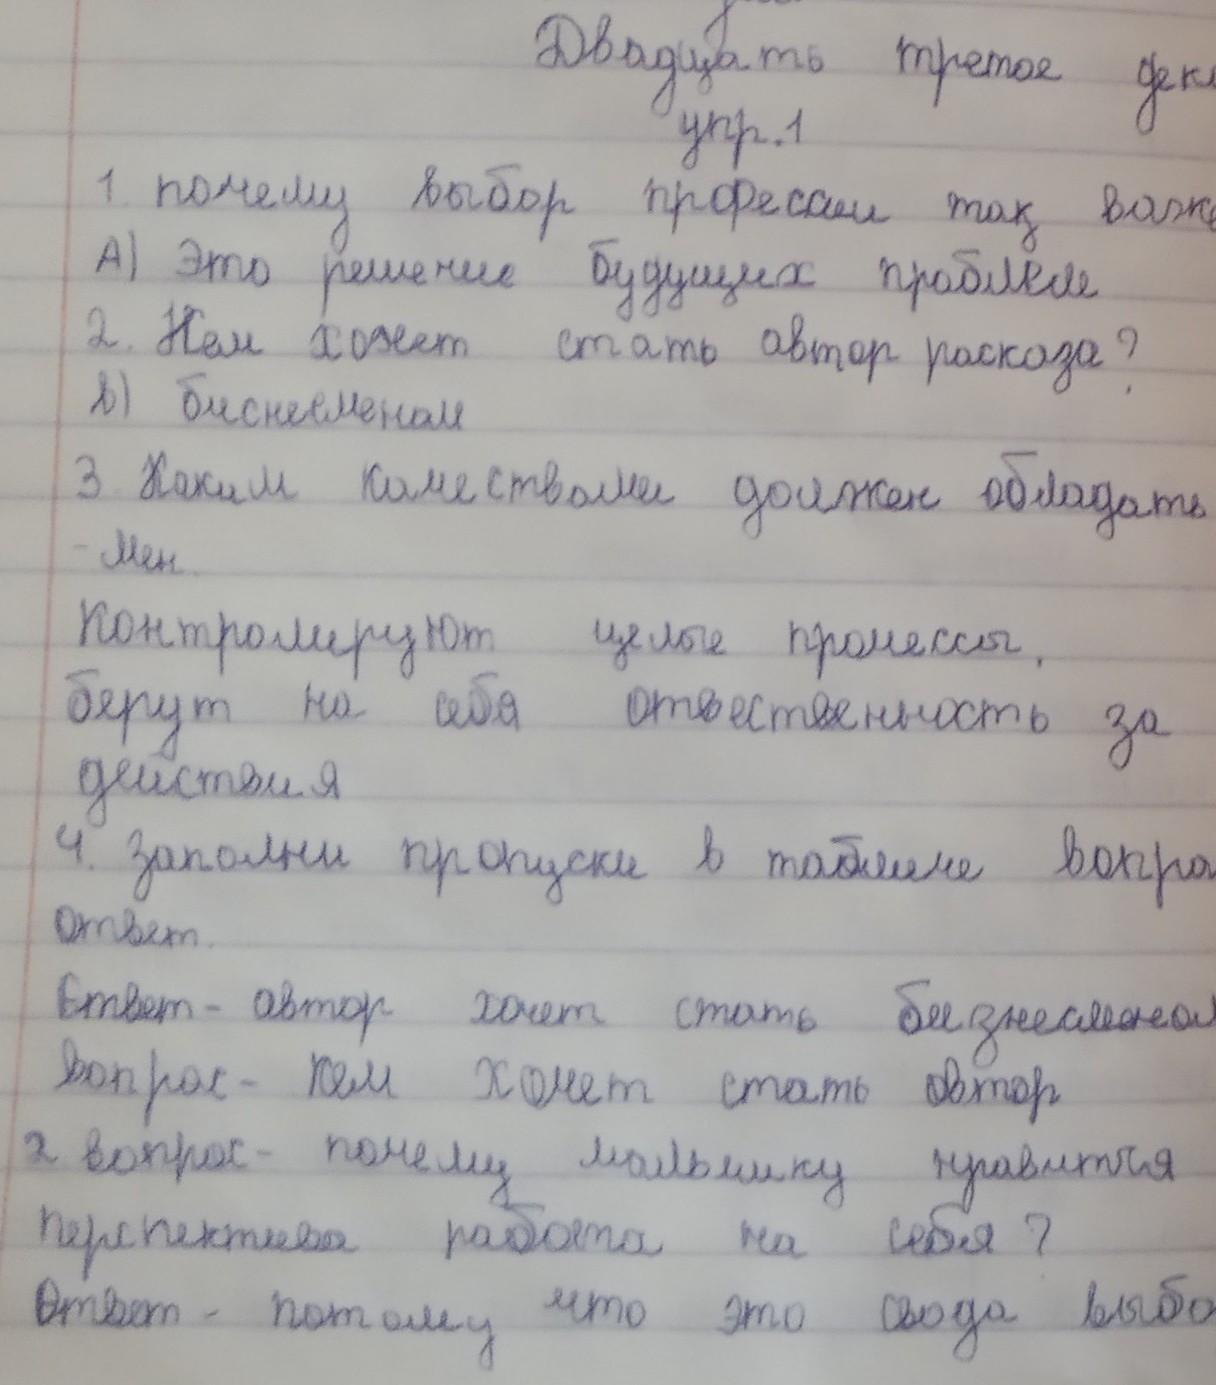 Двадцать третое дек
упр.1
1. почему выбор професии так важе
А) Это решение будущих проблем
2. Кем хочет стать автор расказа?
в) биснесменом
3. Каким качествами должен обладать
-мен.
Контролируют целые процессы,
берут на себя отвественность за
действия
4. Заполни пропуски в таблице вопро
ответ.
Ответ- автор хочет стать бизнесменом
Вопрос- Кем хочет стать автор
2 вопрос- почему мальчику нравится
перспектива работа на себя?
Ответ- потому что это свода выбо